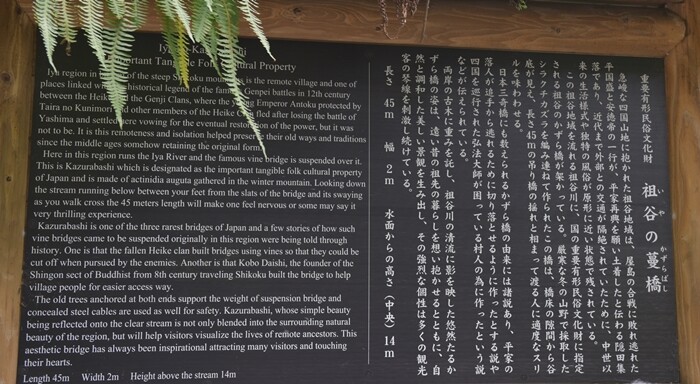 Iya
Important Tangible Folk Cultural Property
Iya region in of the steep Shikoku mountains is the remote village and one of
places linked with historical legend of the famous Genpei battles in 12th century
between the Heike and the Genji Clans, where the young Emperor Antoku protected by
Taira no Kunimori and other members of the Heike Clan fled after losing the battle of
Yashima and settled here vowing for the eventual restoration of the power, but it was
not to be. It is this remoteness and isolation helped preserve their old ways and traditions
since the middle ages somehow retaining the original form.
Here in this region runs the Iya River and the famous vine bridge is suspended over it.
This is Kazurabashi which is designated as the important tangible folk cultural property
of Japan and is made of actinidia auguta gathered in the winter mountain. Looking down
the stream running below between your feet from the slats of the bridge and its swaying
as you walk cross the 45 meters length will make one feel nervous or some may say it
very thrilling experience.
Kazurabashi is one of the three rarest bridges of Japan and a few stories of how such
vine bridges came to be suspended originally in this region were being told through
history. One is that the fallen Heike clan built bridges using vines so that they could be
cut off when pursued by the enemies. Another is that Kobo Daishi, the founder of the
Shingon sect of Buddhist from 8th century traveling Shikoku built the bridge to help
village people for easier access way.
The old trees anchored at both ends support the weight of suspension bridge and
concealed steel cables are used as well for safety. Kazurabashi, whose simple beauty
being reflected onto the clear stream is not only blended into the surrounding natural
beauty of the region, but will help visitors visualize the lives of remote ancestors. This
aesthetic bridge has always been inspirational attracting many visitors and touching
their hearts.
Length 45m Width 2m Height above the stream 14m
重要有形民俗文化財
祖谷の蔓橋
いや かずらばし
急峻な四国山地に抱かれた祖谷地域は、屋島の合戦に敗れ逃れた
平国盛と安徳帝の一行が、平家再興を願い土着したと伝わる隠田集
落であり、近代まで外部との交通が隔絶されていたために、中世以
来の生活様式や独特の風俗が原形に近い状態で残されている。
この祖谷地域を流れる祖谷川に、国の重要有形民俗文化財に指定
される祖谷のかずら橋が架かっている。厳寒な冬の山野で採取した
シラクチカズラを編み連ねて作られたこの橋は、橋床の隙間から谷
底が見え、長さ45mの吊り橋の揺れと相まって渡る人に適度なスリ
ルを味わわせる。
日本三奇橋にも数えられるかずら橋の由来には諸説あり、平家の
落人が追手から逃れるために切り落とせるように作ったとする説や
四国を巡行された弘法大師が困っている村人の為に作ったという説
などが伝えられている。
両岸の古木に重みを託し、祖谷川の清流に影を映した悠然たるか
ずら橋の姿は、遠い昔の祖先の暮らしを想い抱かせるとともに、自
然と調和した美しい景観を生み出し、その強烈な個性は多くの観光
客の琴線を刺激し続けている。
長さ 45m 幅 2m 水面からの高さ(中央) 14m